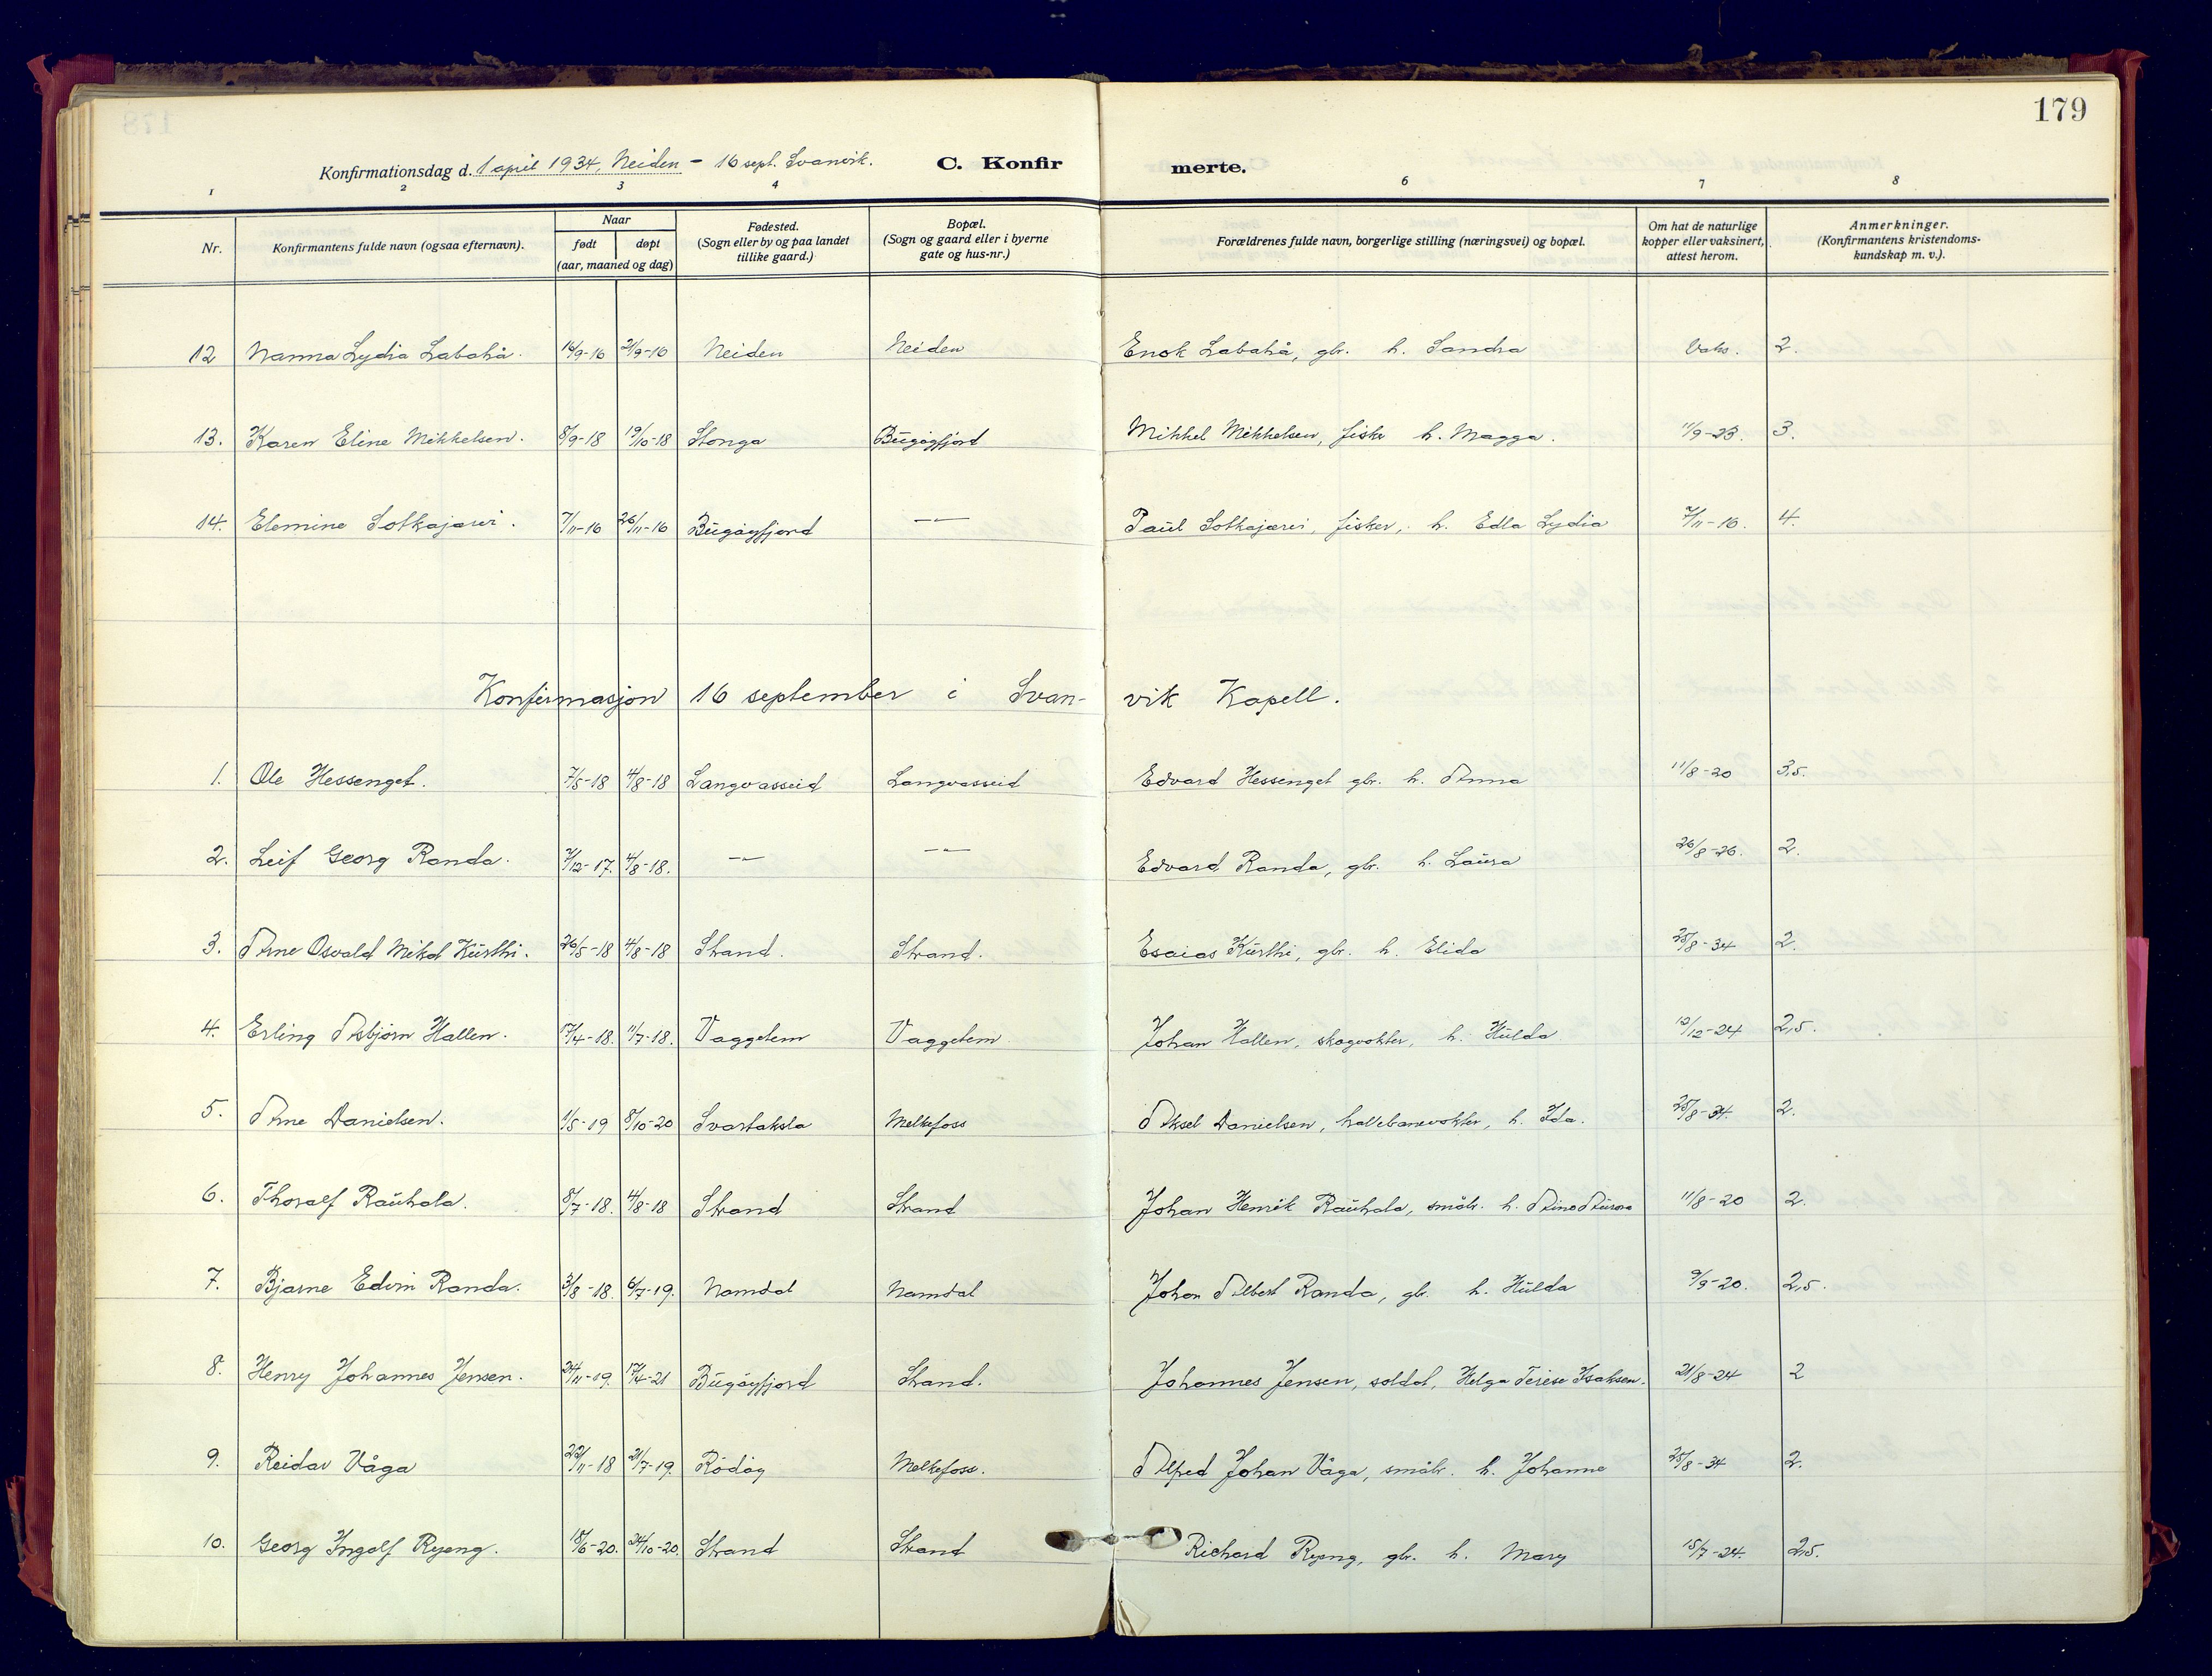 179
Konfirmationsdag d. 1 april 1934, Neiden - 16 sept. Svanvik. C. Konfir merte.
1 2 3 4 6 7 8
Nr. Konfirmantens fulde navn (ogsaa efternavn). Naar født døpt (aar, maaned og dag) Fødested. (Sogn eller by og paa landet tillike gaard.) Bopæl. (Sogn og gaard eller i byerne gate og hus-nr.) Forældrenes fulde navn, borgerlige stilling (næringsvei) og bopæl. Om hat de naturlige kopper eller vaksinert, attest herom. Anmerkninger. (Konfirmantens kristendoms-kundskap m. v.).
12 Nanna Lydia Labahå. 14/9-16 21/9-16 Neiden Neiden Enok Labahå, gbr. h. Sandra Vaks. 2.
13. Karen Eline Mikkelsen. 8/9-18 19/10-18 Stonga Bugøyfjord Mikkel Mikkelsen, fisker h. Magga. 11/9-23. 3.
14. Elemine Sotkajærvi. 7/11-16 26/11-16 Bugøyfjord -"- Paul Sotkajærvi, fisker, h. Edla Lydia 7/11-16. 4.
Konfirmasjon 16 september i Svan- vik Kapell.
1. Ole Hessenget. 7/5-18 4/8-18 Langvasseid Langvasseid Edvard Hessenget gbr. h. Anna 11/8-20 3,5.
2. Leif Georg Randa. 7/12-17. 4/8-18. -"- -"- Edvard Randa, gbr. h. Laura 26/8-26. 2.
3. Arne Osvald Mikal Kurthi. 26/5-18 4/8-18 Strand. Strand. Esaias Kurthi, gbr. h. Elida 25/8-34 2.
4. Erling Asbjørn Hallen. 17/4-18. 11/7-18. Vaggetem Vaggetem Johan Hallen, skogvokter, h. Hulda 12/12-24 2,5.
5. Arne Danielsen. 1/5-19 8/10-20 Svartaksla Melkefoss Aksel Danielsen, h. Ida. 25/8-34. 2.
6. Thoralf Rauhala. 8/7-18. 4/8-18 Strand Strand Johan Henrik Rauhala, småbr. h. Aina Aurora 11/8-20 2.
7. Bjarne Edvin Randa. 3/8-18. 6/7-19. Namdal Namdal Johan Albert Randa, gbr. h. Hulda 9/9-20. 2,5.
8. Henry Johannes Jensen. 24/11-19. 17/4-21 Bugøyfjord Strand. Johannes Jensen, soldat, Helga Terese Isaksen. 21/8-24 2
9. Reidar Våga 22/11-18 21/7-19. Rødøy Melkefoss. Alfred Johan Våga, småbr. h. Johanne 25/8-34 2.
10. Georg Ingolf Ryeng. 18/6-20. 24/10-20. Strand Strand Richard Ryeng, gbr. h. Mary 15/7-24. 2,5.